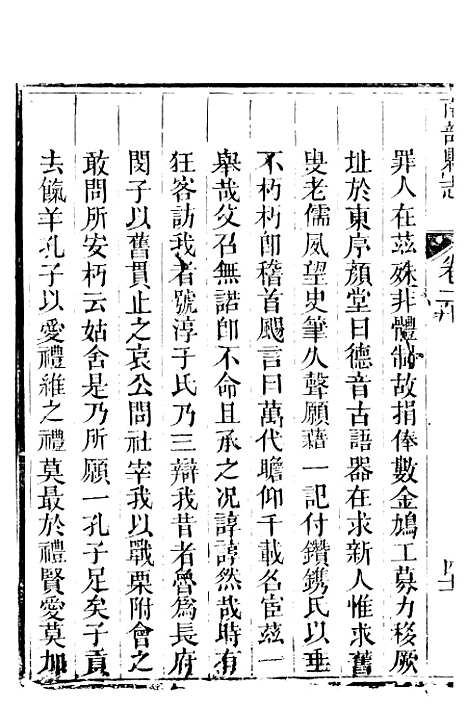 南部縣志
卷二
罪人在茲殊非體制故捐俸數金鳩工募力移厥
址於東序顏堂曰德音古語器在求新人惟求舊
叟老儒風望史筆久聲願藉一記付鑽鐫氏以垂
不朽朽卽稽首颺言曰萬代瞻仰千載名宦茲一
舉哉父召無諾卽不命且承之况諄諄然哉時有
狂客訪我者號淳于氏乃三辯我昔者魯爲長府
閔子以舊貫止之哀公問社宰我以戰栗附會之
敢問所安朽云姑舍是乃所願一孔子足矣子貢
去餼羊孔子以愛禮維之禮莫最於禮賢愛莫加